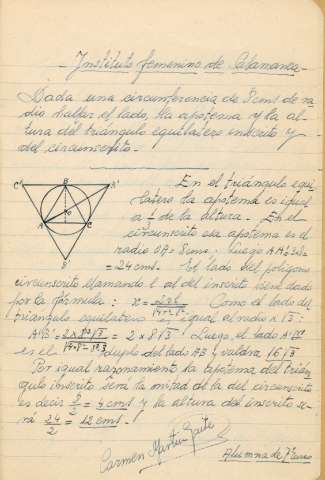 - Instituto femenino de Salamanca -
Dada una circunferencia de 8 cms de ra-
dio hallar el lado, la apotema y la al-
tura del triángulo equilatero inscrito y
del circunscrito.
C' B A'
O
A C
B'
En el triángulo equi
latero la apotema es igual
a 1/3 de la altura. En el
circunscrito esa apotema es el
radio OA = 8 cms. Luego
= 24 cms. El lado del polígono
circunscrito llamando l al del inscrito será dado
por la formula: x = Como el lado del
triángulo equilatero igual al radio x √3:
A'B' = = 2 x 8√3 Luego, el lado
es el duplo del lado AB y valdrá 16√3
Por igual razonamiento la apotema del trian
gulo inscrito será la mitad de la del circunscrito
es decir 8/2 = 4 cms y la altura del inscrito se-
rá 24/2 = 12 cms.
Carmen Martín Gaite
Alumna de